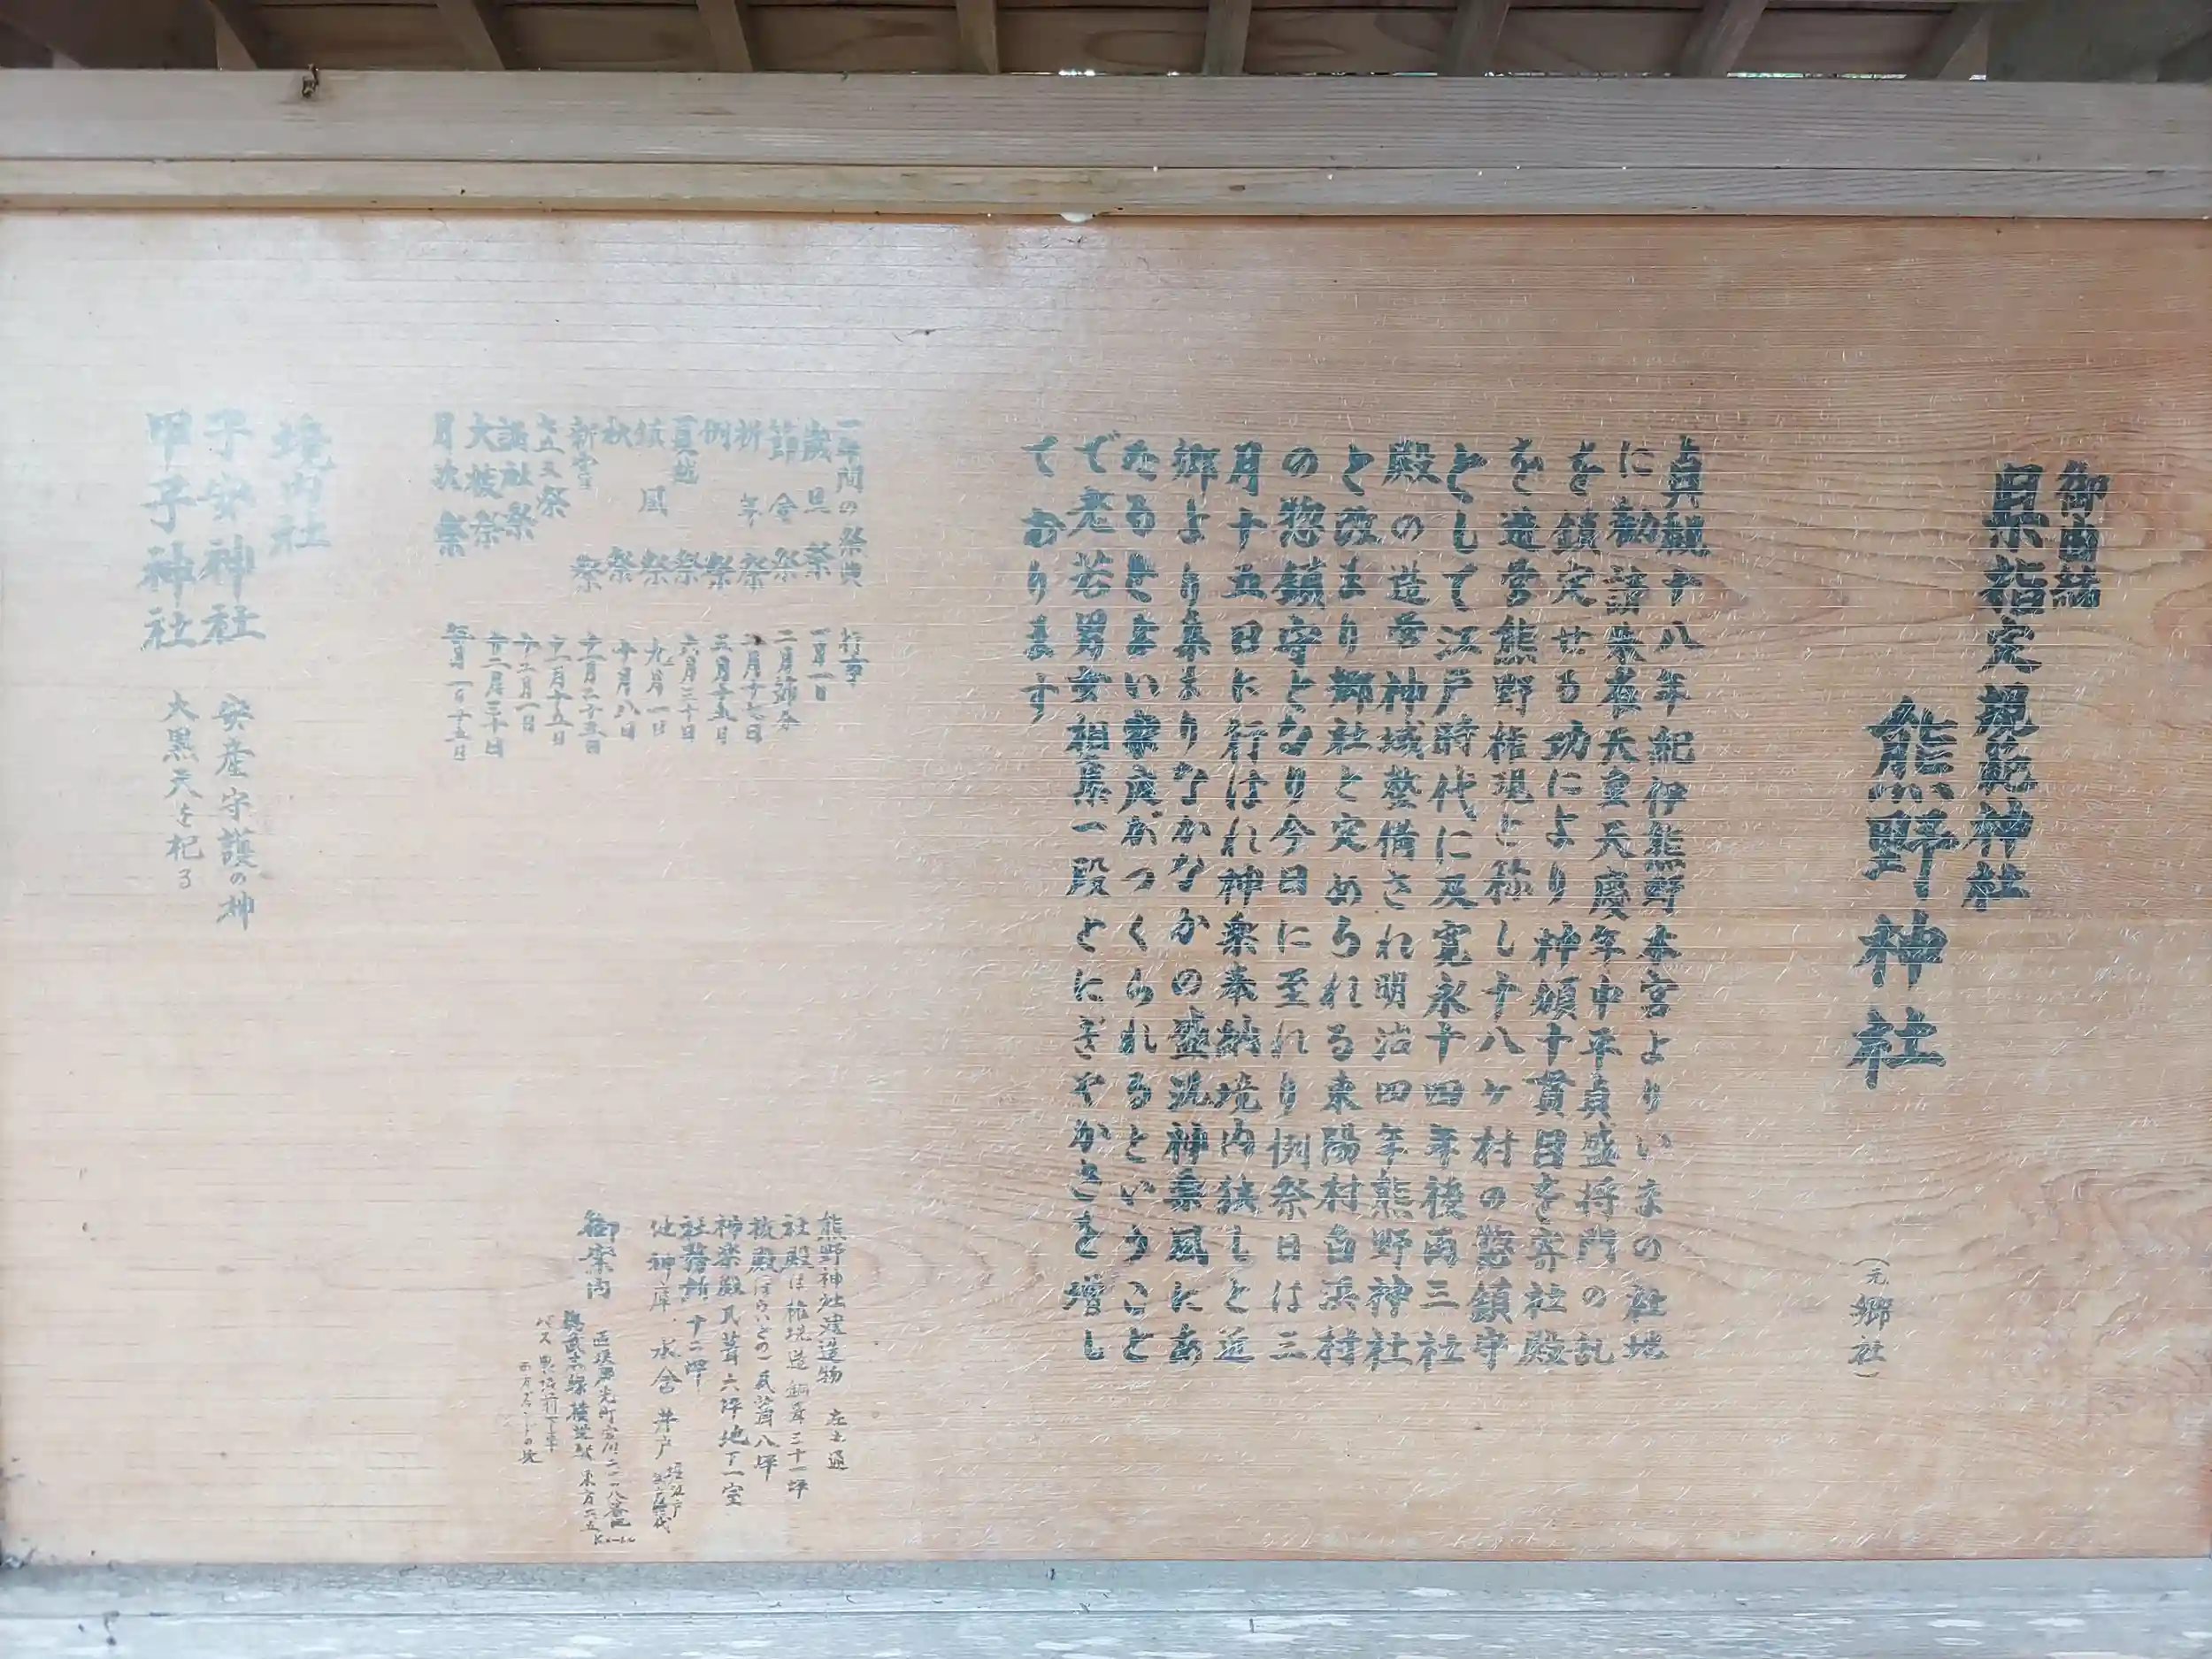 御由緒
県指定 規範神社
熊野神社
(元郷社)
貞観十八年紀伊熊野本宮よりいまの社地
に勧請朱雀天皇天慶年中平貞盛将門の乱
を鎮定せる功により神領十貫目を寄社殿
を造営熊野権現と称し十八ヶ村の惣鎮守
として江戸時代に及寛永十四年後両三社
殿の造営神域整備され明治四年熊野神社
と改まり郷社と定められる東陽村白浜村
の惣鎮守となり今日に至れり例祭日は三
月十五日に行はれ神楽奉納境内狭しと近
郷より集まりなかなかの盛況神楽風にあ
たるとよい家庭がつくられるということ
で老若男女相集一段とにぎやかさを増し
ております
一年間の祭典 行事
歳旦祭 一月一日
節会祭 二月節分
祈年祭 二月十七日
例祭 三月十五日
夏越祭 六月三十日
鎮風祭 九月一日
秋祭 十月十八日
新嘗祭 十一月二十三日
七五三祭 十一月十五日
諸社祭 十二月一日
大祓祭 十二月三十日
月次祭 毎月一日十五日
熊野神社建造物 左之通
社殿は権現造 銅葺三十一坪
神楽殿 瓦葺六坪地下一室
社務所 十二坪
他神庫、水舎 井戸
御案内
境内社
子安神社 安産守護の神
甲子神社 大黒天を祀る